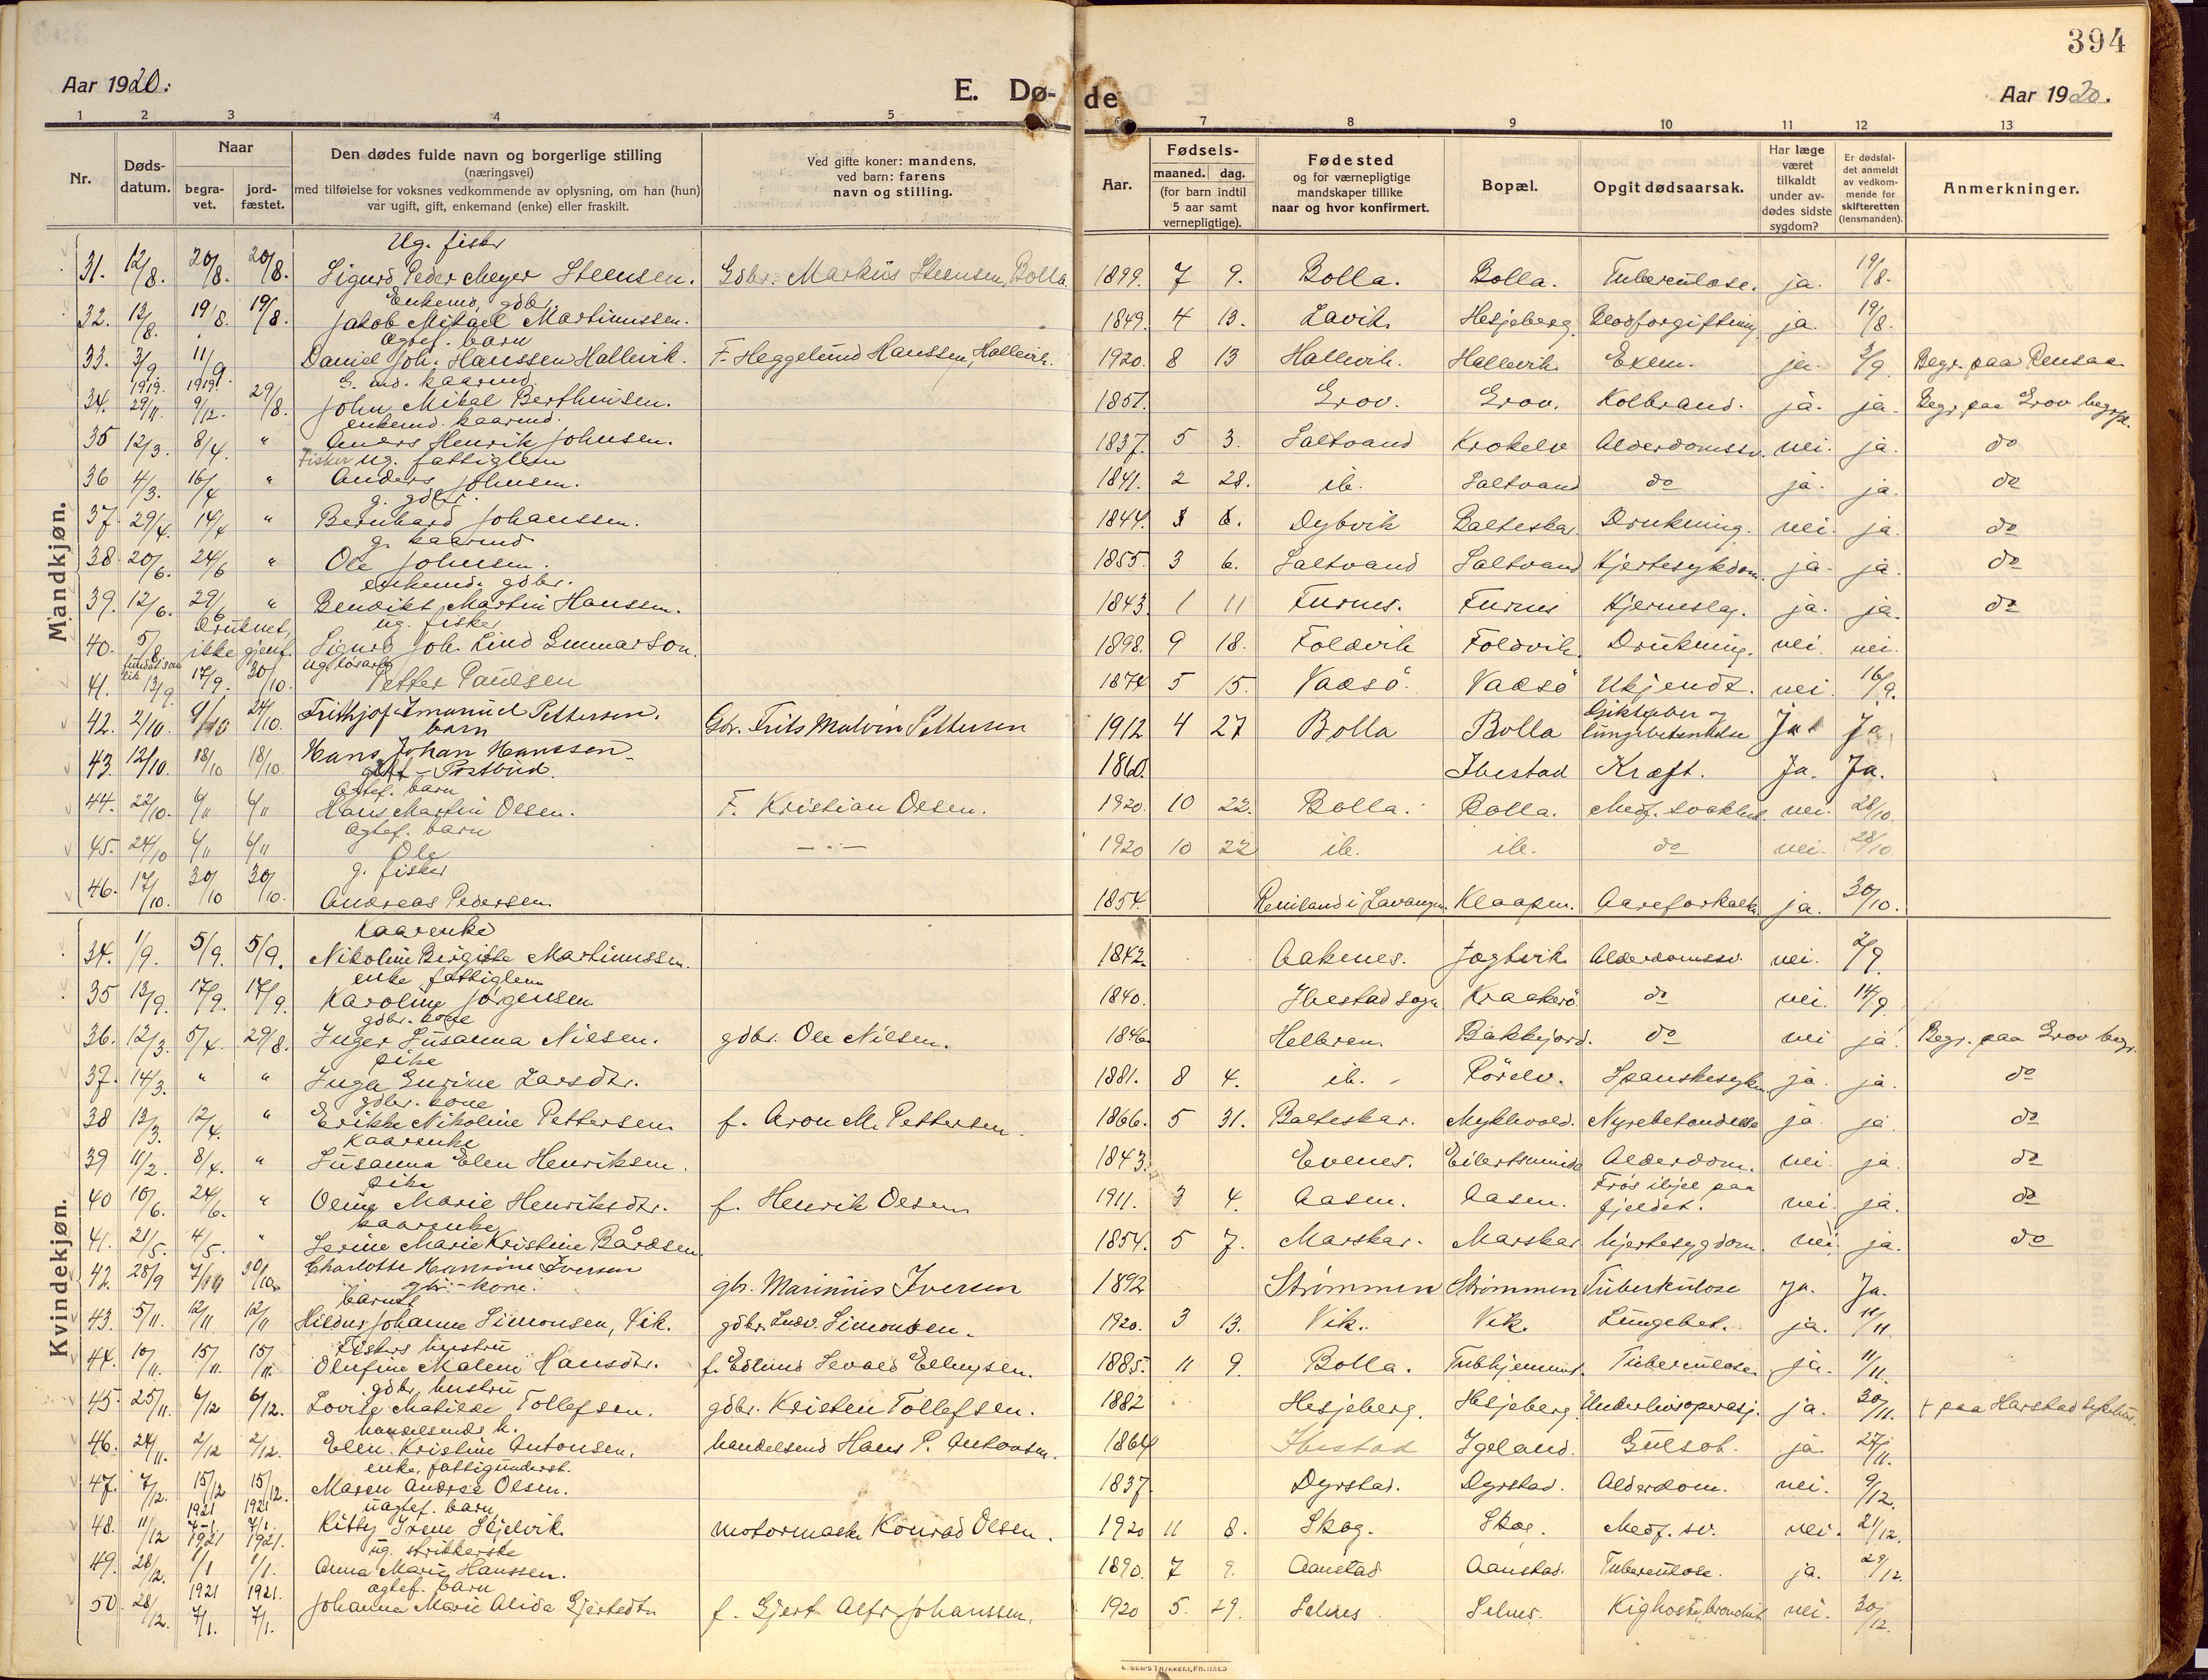 394
Aar 1920. E. Døde Aar 1920.
1 2 3 4 5 6 7 8 9 10 11 12 13
Nr. Døds-datum. Naar begra-vet. jord-fæstet. Den dødes fulde navn og borgerlige stilling (næringsvei) med tilføielse for voksnes vedkommende av oplysning, om han (hun) var ugift, gift, enkemand (enke) eller fraskilt. Ved gifte koner: mandens, ved barn: farens navn og stilling. Aar. Fødsels- maaned. dag. (for barn indtil 5 aar samt vernepligtige). Fødested og for værnepligtige mandskaper tillike naar og hvor konfirmert. Bopæl. Opgit dødsaarsak. Har læge været tilkaldt under av-dødes sidste sygdom? Er dødsfal-det anmeldt av vedkom-mende for skifteretten (lensmanden). Anmerkninger.
Mandkjøn.
Ug. fisker
31. 12/8. 20/8. 20/8. Sigurd Peder Meyer Steensen. Gdbr. Markus Steensen, Bolla 1899. 7 9. Bolla. Bolla. Tuberculose. ja. 19/8.
Enkemd, gdbr.
32. 12/8. 19/8. 19/8. Jakob Mikael Martinussen. 1849. 4 13. Lavik Hesjeberg. Blodforgiftning ja. 19/8.
Ægtef. barn
33. 3/9. 11/9. Daniel Joh. Hanssen Hallevik. F. Heggelund Hanssen, Hallevik. 1920. 8 13 Hallevik. Hallevik Exem. ja. 3/9. Begr. paa Rensaa
1919. 1919. G. md. kaarmd.
34. 29/11. 9/12. 29/8. John Mikal Berthinsen. 1851. Grov. Grov. Kolbrand. ja. ja. Begr. paa Grov begrpl.
enkemd. kaarmd.
35 12/3. 8/4. " Anders Henrik Johnsen. 1837. 5 3. Saltvand Krokelv Alderdomssv. nei. ja. do
Fisker ug. fattiglem
36 4/3. 16/4 " Anders Johnsen. 1841. 2 28. ib. Saltvand do ja. ja. do
g. gdbr.
37. 29/4. 14/4 " Bernhard Johanssen. 1844. 8. Dybvik Balteskar. Drukning. nei. ja. do
g. kaarmd
38. 20/6. 24/6 " Ole Johnsen. 1855. 3 6. Saltvand Saltvand Hjertesykdom. ja. ja. do
enkemd. gdbr.
39. 12/6. 29/6 " Bendikt Martin Hanssen. 1843. 1 11 Furnes. Furnes Hjerneslag. ja. ja. do
ug. fisker
40. 5/8. Druknet, ikke gjenf. Sigurd Joh. Lind Gunnarson. 1898. 9 18. Foldvik Foldvik. Drukning. nei. nei.
fundet som lik ug. løsarb.
41. 13/9. 17/9. 30/10. Petter Paulsen 1874 5 15. Vadsø. Vadsø Ukjendt. nei. 16/9.
42. 2/10. 9/10 24/10. Frithjof Imanuel Pettersen. Gbr. Frits Malvin Pettersen 1912 4 27 Bolla Bolla Giktfeber og lungebetændelse Ja. Ja.
barn
43. 12/10. 18/10 18/10 Hans Johan Hanssen. 1860. Ibestad Kræft. Ja. Ja.
gift - Postbud.
Ægtef. barn
44. 22/10. 6/11 6/11 Hans Martin Olsen. F. Kristian Olsen. 1920. 10 22. Bolla. Bolla. Medf. svakhet. nei. 28/10.
Ægtef. barn
45. 24/10 6/11 6/11 Ole 1920 10 22 ib. ib. do nei. 28/10.
g. fisker
46. 17/10. 30/10 30/10. Andreas Pedersen. 1854. Reniland i Lavangen. Klaapen. Aareforkalkn. ja. 30/10.
Kvindekjøn.
Kaarenke
34. 1/9. 5/9. 5/9. Nikoline Birgitte Martinussen. 1842. Aakenes. Jogtvik Alderdomssv. nei. 2/9.
enke fattiglem
35 13/9. 17/9. 17/9. Karoline Jørgensen 1840. Ibestad sogn Kraakerø do nei. 14/9
gdbr. kone
36. 12/3. 5/4. 29/8. Inger Susanna Nilsen. gdbr. Ole Nilsen. 1846. Helleren. Bakkejord. do nei ja. Begr. paa Grov begr.
pike
37. 14/3. " " Inga Gurine Larsdtr. 1881. 8 4. ib. Rørelv. Spanskesyken ja. ja. do
gdbr. kone
38 13/3. 12/4. " Erikke Nikoline Pettersen. f. Aron M. Pettersen. 1866. 5 31. Balteskar. Myklevold. Nyrebetændelse ja. ja. do
Kaarenke
39 11/2. 8/4. " Susanna Elen Henriksen. 1843. Evenes. Alderdom. nei. ja. do
pike
40 10/6. 24/6. " Oline Marie Henriksdtr. f. Henrik Olsen 1911. 3 4. Aasen. Aasen. Frøs ihjel paa fjeldet. nei. ja. do
kaarenke
41. 21/5. 4/5. " Serine Marie Kristine Bårdsen 1854. 5 7. Marskar. Marskar Hjertesygdom. nei ja. do
42. 28/9 7/10 30/10 Charlotte Hansine Iversen gbr. Marinius Iversen 1892 Strømmen Strømmen Tuberkulose Ja. Ja.
gbr.-kone.
barnet
43. 5/11. 12/11 12/11 Hildur Johanne Simonsen, Vik. gdbr. Ludv. Simonsen. 1920. 3 13. Vik. Vik. Lungebet. ja. 11/11.
Fiskers hustru
44. 10/11. 15/11. 15/11. Olufine Malene Hansdtr. f. Edlund Sevald Ellingsen. 1885. 11 9. Bolla. Tuberculose ja. 11/11.
gdbr. hustru
45. 25/11. 6/12 6/12. Lovise Matilde Tollefsen. gdbr. Kristen Tollefsen. 1882 Hesjeberg. Hesjeberg. Underlivsoperasj. ja. 30/11. † paa Harstad sykehus.
handelsmds h.
46. 24/11. 2/12 2/12. Elen Kristine Antonsen. handelsmd Hans P. Antonsen. 1864 Ibestad Igeland. Gulsot. ja. 27/11.
enke, fattigunderst.
47. 7/12. 15/12 15/12. Maren Andrea Olsen. 1837. Dyrstad. Dyrstad. Alderdom. nei. 9/12.
1921 1921 uægtef. barn
48. 11/12 7/1 7/1. Kitty Irene Skjelvik motormask. Konrad Olsen. 1920 11 8. Skog. Skog. Medf. sv. nei. 21/12.
1921 1921. ug. strikkerske
49. 28/12. 1/1 1/1. Anna Marie Hanssen. 1890. 7 9. Aanstad Aanstad. Tuberculose. ja. 29/12.
1921 1921. ægtef. barn
50. 28/12. 7/1. 7/1. Johanna Marie Alida Gjertsdtr. f. Gjert Alfr. Johanssen. 1920 5. 29. Selnes Selnes. Kighoste, bronchit nei. 30/12.